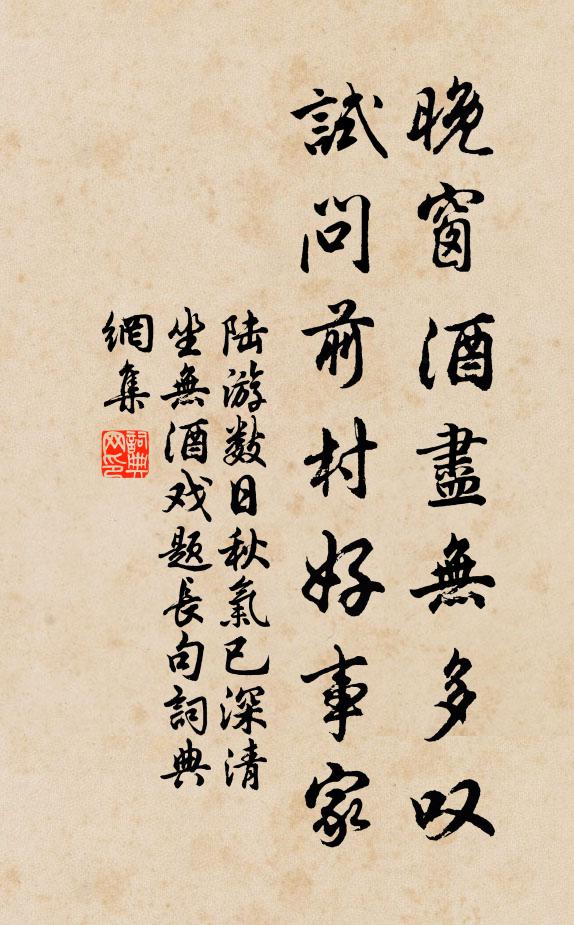 晚窗酒盡無多叹
試问前村好事家
陆游数日秋氣已深清
坐無酒戏题长句詞典
網集
詞典网印